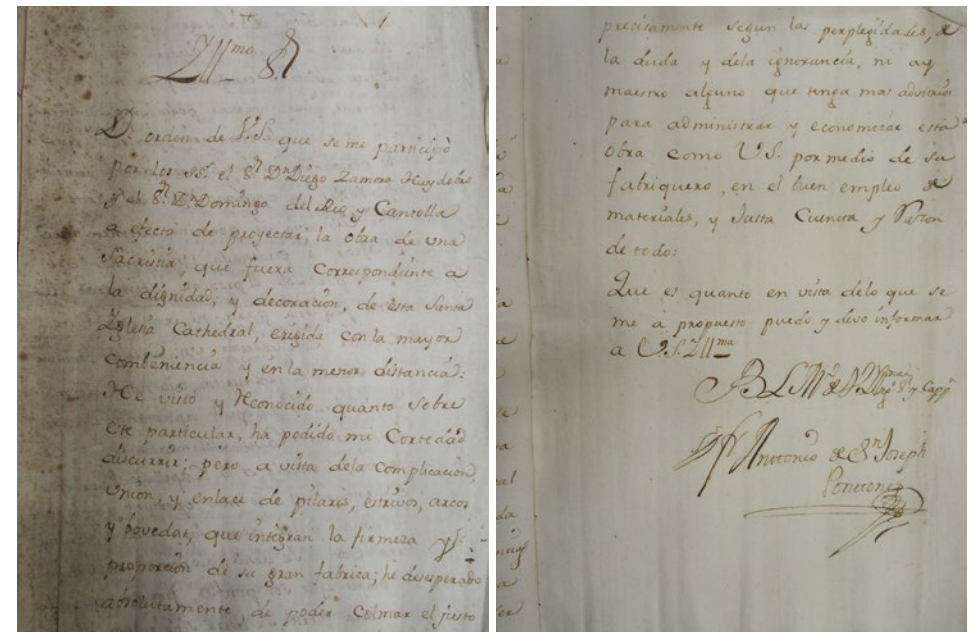 Yll.mo S.r
De orden de V.S. que se me participó
por los SS. el S.r D.n Diego Zamora
y el S.r D.n Domingo del Rio y Cantolla
a efecto de proyectar, la obra de una
Sacristia, que fuera Correspondiente a
la dignidad, y decoracion, de esta Santa
Yglesia Cathedral, erigida con la mayor
combeniencia y en la menor distancia:
He visto y Reconocido quanto sobre
este particular, ha podido mi Cortedad
discurrir; pero a vista dela Complicacion,
Union, y enlace de pilares, estrivos, arcos
y bovedas, que integran la firmeza y
proporcion de su gran fabrica; he desesperado
absolutamente, de poder Colmar el justo
precisamente segun las perplegidades, de
la duda y dela ignorancia, ni ay
maestro alguno que tenga mas
para administrar y economizar esta
Obra como V.S. por medio de su
fabriquero, en el buen empleo de
materiales, y Justa Cuenta y Razon
de todo:
Que es quanto en vista delo que se
me a propuesto puedo y devo informar
a V.S. Yll.ma
B L M
Fr Antonio de S.n Joseph
Pontones